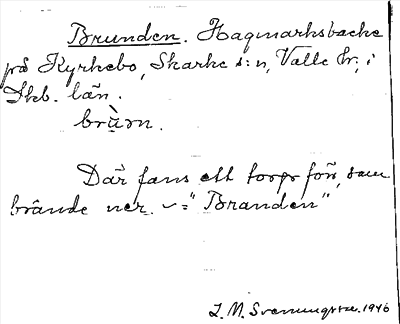 Brunden. Hagmarksbacke
på Kyrkebo, Skarke s:n, Valle hr, i
Skb. län.
brùn.
Där fans ett torp förr, som
brände ner. ~ = "Branden"
L. M. Svenungsson. 1946